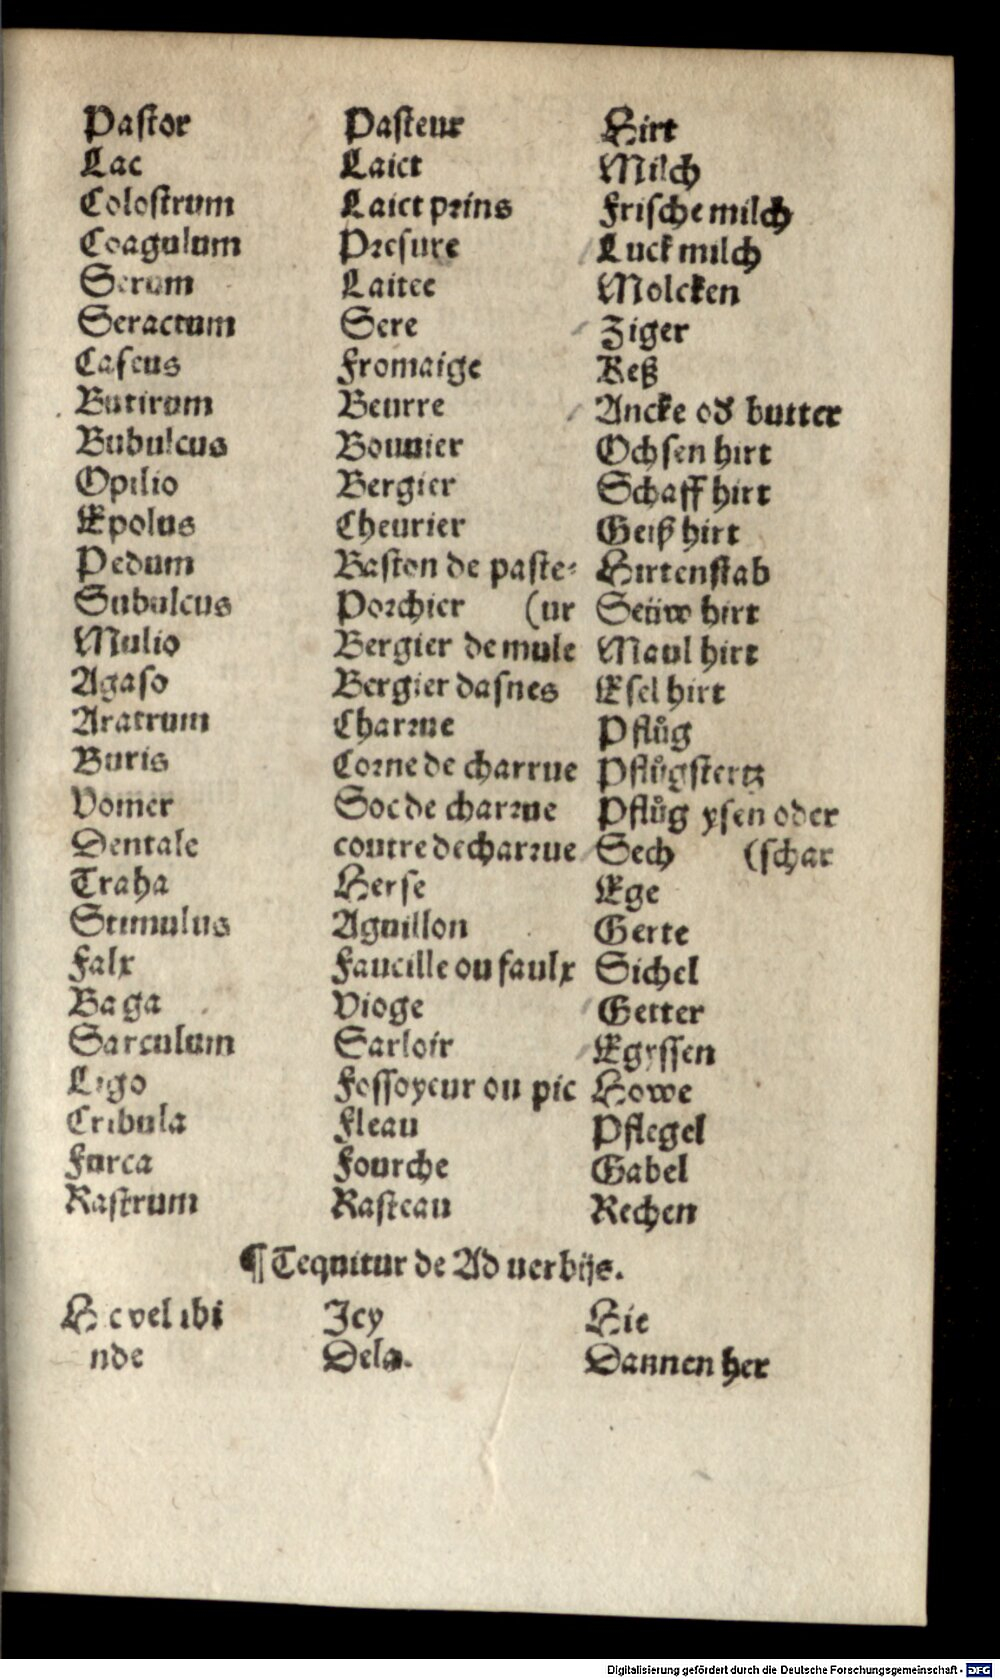 Pastor Pasteur Hirt
Lac Laict Milch
Colostrum Laict prins Frische milch
Coagulum Presure Luck milch
Serum Laitee Molcken
Seractum Sere Ziger
Caseus Fromaige Keß
Butirum Beurre Ancke od butter
Bubulcus Bouuier Ochsen hirt
Opilio Bergier Schaff hirt
Epolus Cheurier Geiß hirt
Pedum Baston de paste- Hirtenstab
Subulcus Porchier (ur Seüw hirt
Mulio Bergier de mule Maul hirt
Agaso Bergier dasnes Esel hirt
Aratrum Charrue Pflůg
Buris Corne de charrue Pflůgstertz
Vomer Soc de charrue Pflůg ysen oder
Dentale coutre de charrue Sech (schar
Traha Herse Ege
Stimulus Aguillon Gerte
Falx Faucille ou faulx Sichel
Baga Vioge Getter
Sarculum Sarloir Egyssen
Ligo Fossoyeur ou pic Howe
Cribula Fleau Pflegel
Furca Fourche Gabel
Rastrum Rasteau Rechen
¶ Tequitur de Ad uerbijs.
H c vel ibi Icy Hie
nde Dela. Dannen her
Digitalisierung gefördert durch die Deutsche Forschungsgemeinschaft - DFG